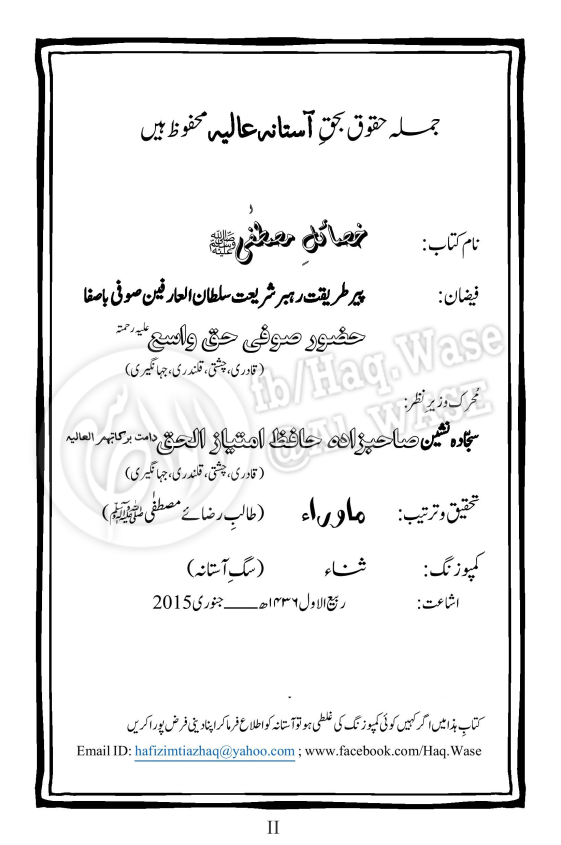 جملہ حقوق بحقِ آستانہ عالیہ محفوظ ہیں
نام کتاب: خصائلِ مصطفٰی ﷺ
فیضان: پیر طریقت رہبر شریعت سلطان العارفین صوفی باصفا
حضور صوفی حق واسع علیہ رحمتہ
(قادری، چشتی، قلندری، جہانگیری)
مُحرک و زیرِ نظر:
سجّادہ نشین صاحبزادہ حافظ امتیاز الحق دامت برکاتہم العالیہ
(قادری، چشتی، قلندری، جہانگیری)
تحقیق و ترتیب: ماوراء (طالبِ رضائے مصطفٰی ﷺ)
کمپوزنگ: ثناء (سگِ آستانہ)
اشاعت: ربیع الاول ۱۴۳۶ھ ــــــ جنوری 2015
کتابِ ہذا میں اگر کہیں کوئی کمپوزنگ کی غلطی ہو تو آستانہ کو اطلاع فرما کر اپنا دینی فرض پورا کریں
Email ID: hafizimtiazhaq@yahoo.com ; www.facebook.com/Haq.Wase
II
fb/Haq.Wase